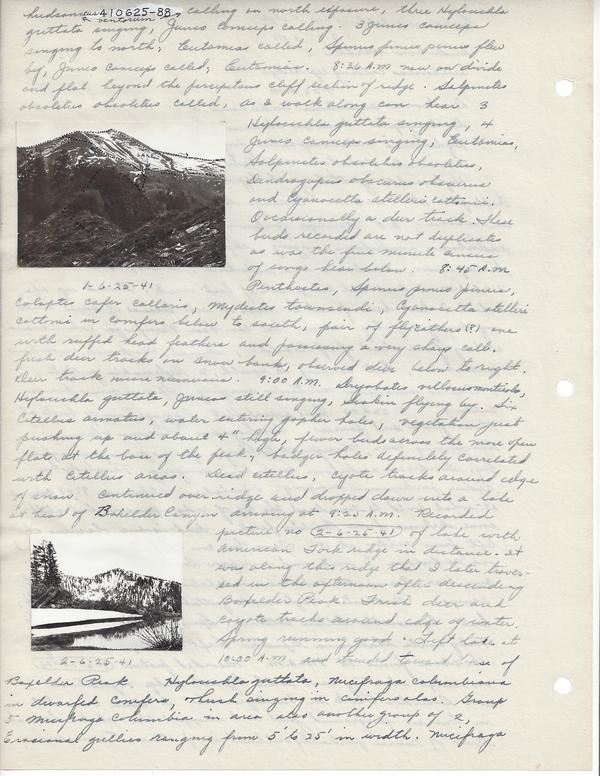 hudsonicus 410625-88, calling on north exposure, three Hylocichla
& ventorum
guttata singing, Junco caniceps calling. 3 Junco caniceps
singing to north; Eutamias called, Spinus pinus pinus flew
by, Junco caniceps called; Eutamias. 8:26 A.M now on divide
and flat beyond the perceptous cliff section of ridge. Salpinctes
obsoletus obsoletus called, as I walk along can hear 3
Hylocichla guttata singing, 4
Junco caniceps singing, Eutamias,
Salpinctes obsoletus obsoletus,
Dendragapus obscurus obscurus
and Cyanocitta stelleri cottomi.
Occasionally a deer track. These
birds recorded are not duplicates
as was the five minute census
of songs hear below. 8:45 A.M
LAKE
1-6-25-41
Penthestes, Spinus pinus pinus,
Colaptes cafer collaris, Myadestes townsendi, Cyanocitta stelleri
cottomi in conifers below to south, pair of flycathers(?) one
with ruffed head feathers and possessing a very sharp call.
fresh deer tracks on snow bank, observed deer below to right.
Deer track more numerous. 9:00 A.M. Dryobates villosus monticola,
Hylocichla guttata, Juncos still singing, Siskin flying by. Six
Citellus armatus, water entering gopher holes, vegetation just
pushing up and about 4" high, fewer birds across the more open
flats at the base of the peak; badger holes definitely correlated
with Citellus areas. Dead citellus, cyote tracks around edge
of snow. Continued over ridge and dropped down into a lake
at head of Boxelder Canyon arriving at 9:25 A.M. Recorded
picture no 2-6-25-41 of lake with
American Fork ridge in distance. It
was along this ridge that I later traver-
sed in the afternoon after descending
Boxelder Peak. Fresh deer and
coyote tracks around edge of water.
Spring running good. Left lake at
10:30 A.M and headed toward base of
2-6-25-41
Boxelder Peak. Hylocichla guttata, Nucifraga columbiana
in dwarfed conifers, thrush singing in conifers also. Group
5 Nucifraga Columbia in area also another group of 2,
Erosional gullies ranging from 5' to 25' in width. Nucifraga